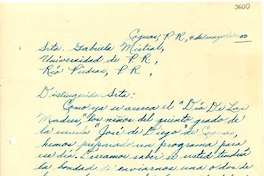 3600
Caguas, P. R., 4 de mayo de
Srta. Gabriela Mistral,
Universidad de P. R.,
Río Piedras, P. R.,
Distinguida Srta:
Como ya se acerca el "Día De Las
Madres", los niños del quinto grado de
la escuela "José de Diego" de
hemos preparado un programa para
ese día. Deseamos saber si usted tendrá
la bondad de enviarnos una o dos de